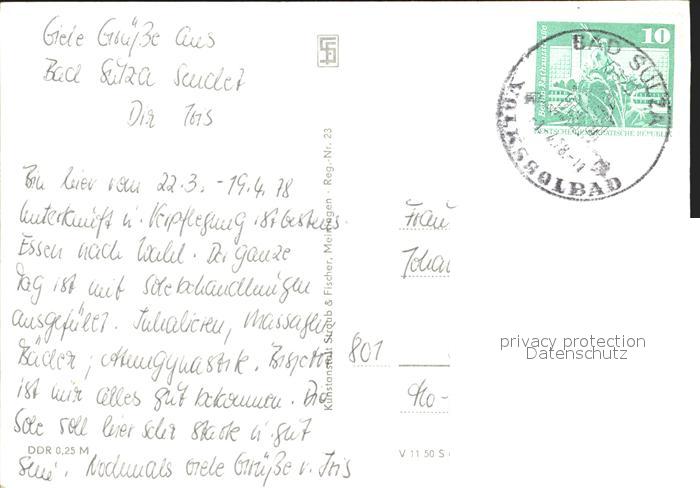 Viele Grüße aus
Bad Sulza sendet
Dir Iris
Bin hier vom 22.3. - 19.4.78
Unterkunft u. Verpflegung ist bestens.
Essen nach Wahl. Der ganze
Tag ist mit Solebehandlungen
ausgefüllt. Inhalieren, Massagen
Bäder, Atemgynastik. Bis jetzt
ist mir alles gut bekommen. Die
Sole soll hier sehr stark u. gut
sein. Nochmals viele Grüße v. Iris
DDR 0,25 M
Kunstanstalt Straub & Fischer, Meiningen · Reg.-Nr. 23
V 11 50 S
10
DEUTSCHE DEMOKRATISCHE REPUBLIK
BAD SULZA
VOLKSSOLBAD
Frau
Johan
801
privacy protection
Datenschutz